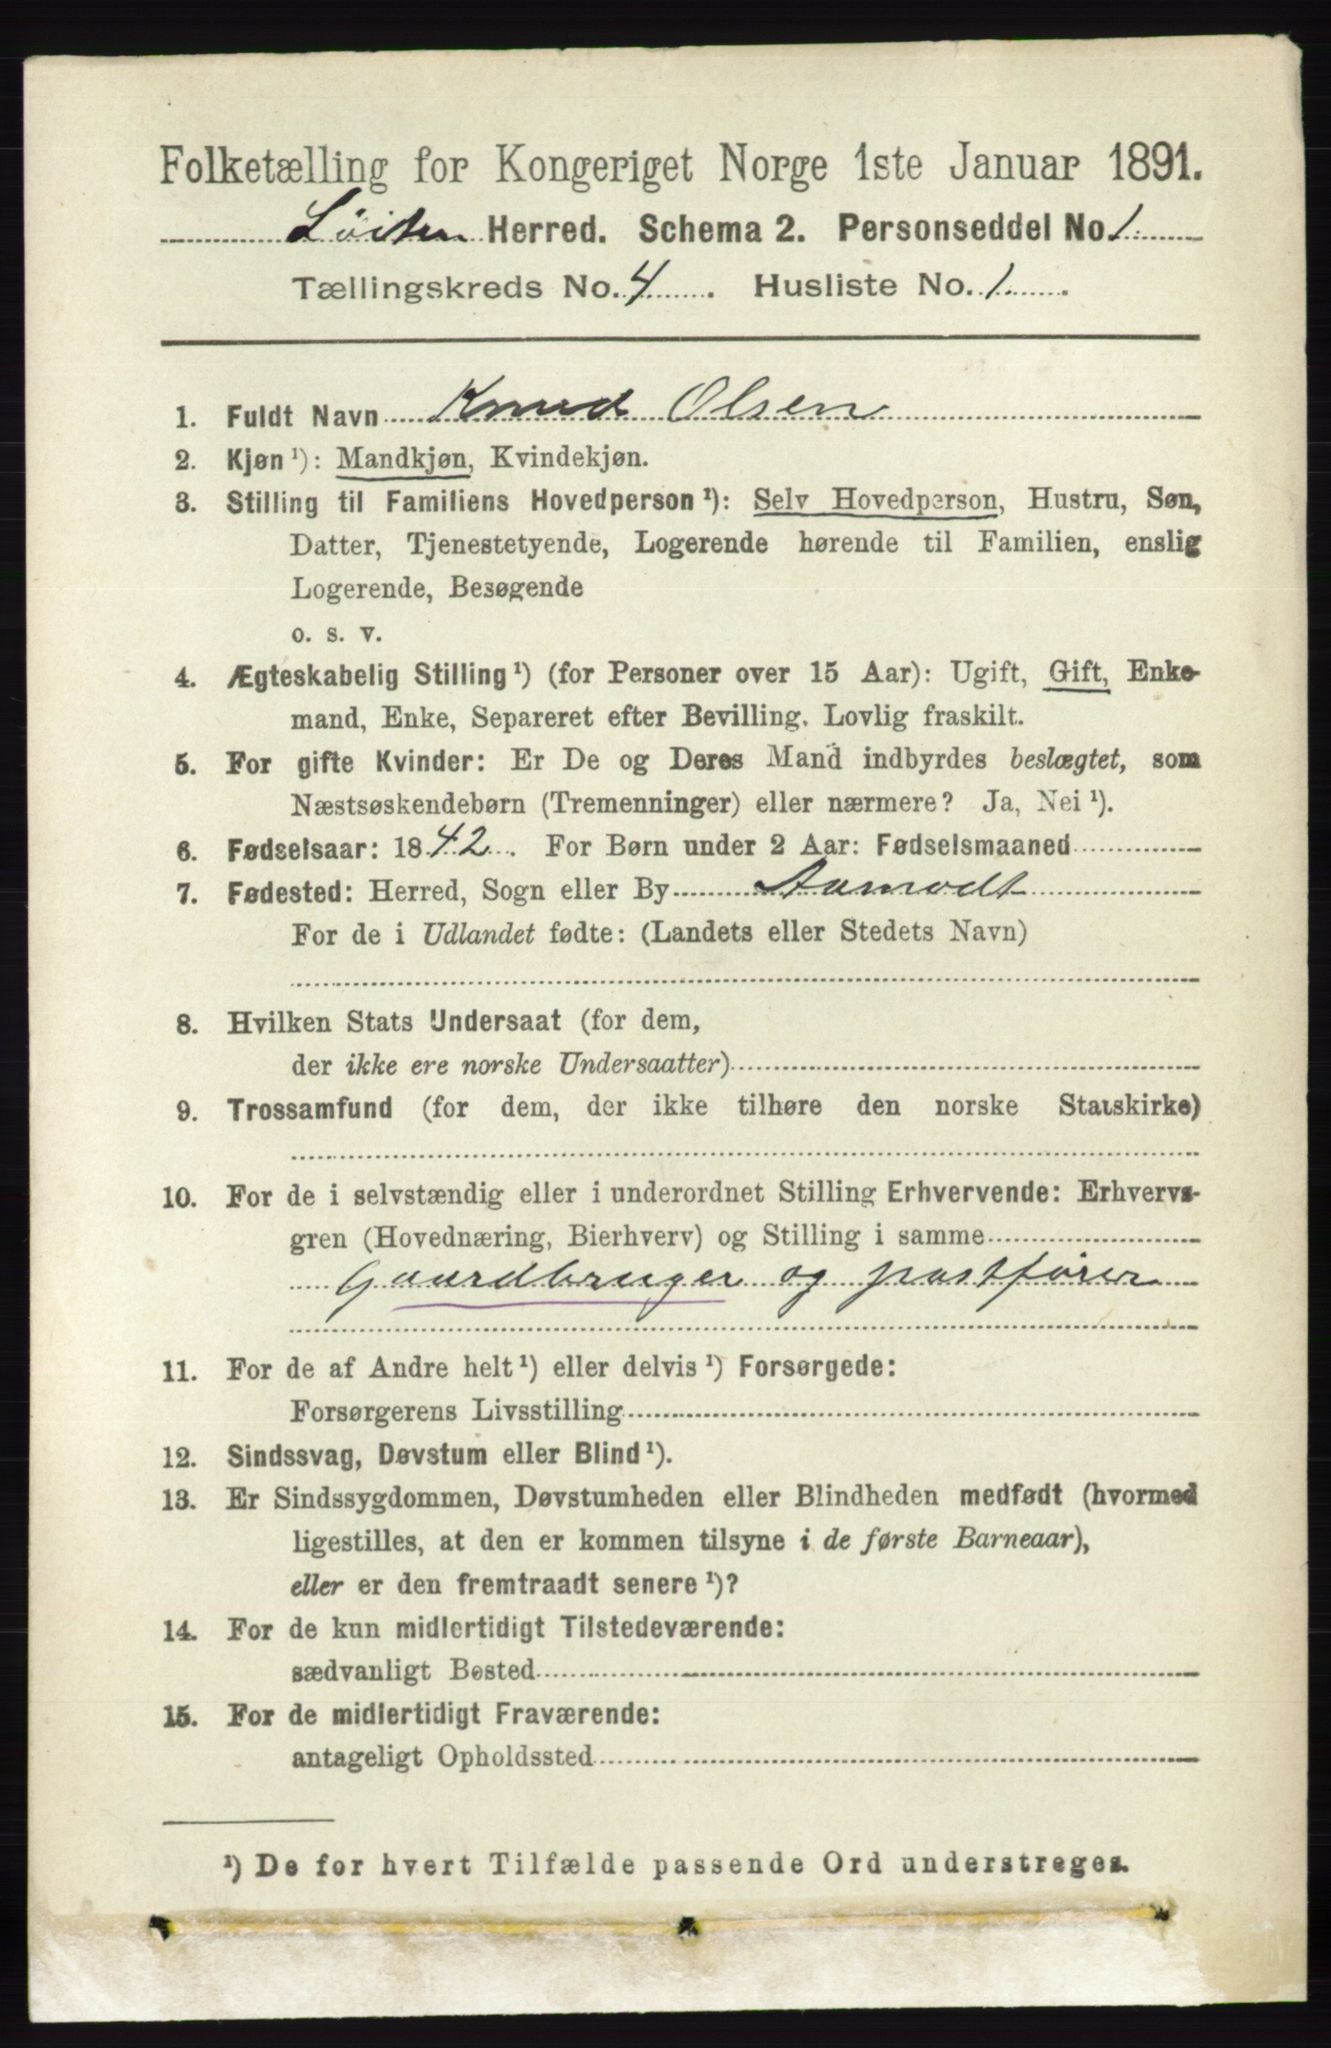 Folketælling for Kongeriget Norge 1ste Januar 1891.
Løiten Herred. Schema 2. Personseddel No. 1
Tællingskreds No. 4. Husliste No. 1.
1. Fuldt Navn Knud Olsen
2. Kjøn ¹): Mandkjøn, Kvindekjøn.
3. Stilling til Familiens Hovedperson ¹): Selv Hovedperson, Hustru, Søn,
Datter, Tjenestetyende, Logerende hørende til Familien, enslig
Logerende, Besøgende
o. s. v.
4. Ægteskabelig Stilling ¹) (for Personer over 15 Aar): Ugift, Gift, Enke-
mand, Enke, Separeret efter Bevilling. Lovlig fraskilt.
5. For gifte Kvinder: Er De og Deres Mand indbyrdes beslægtet, som
Næstsøskendebørn (Tremenninger) eller nærmere? Ja, Nei ¹).
6. Fødselsaar: 1842. For Børn under 2 Aar: Fødselsmaaned
7. Fødested: Herred, Sogn eller By Aamodt
For de i Udlandet fødte: (Landets eller Stedets Navn)
8. Hvilken Stats Undersaat (for dem,
der ikke ere norske Undersaatter)
9. Trossamfund (for dem, der ikke tilhøre den norske Statskirke)
10. For de i selvstændig eller i underordnet Stilling Erhvervende: Erhvervs-
gren (Hovednæring, Bierhverv) og Stilling i samme
Gaardbruger og postfører
11. For de af Andre helt ¹) eller delvis ¹) Forsørgede:
Forsørgerens Livsstilling
12. Sindssvag, Døvstum eller Blind ¹).
13. Er Sindssygdommen, Døvstumheden eller Blindheden medfødt (hvormed
ligestilles, at den er kommen tilsyne i de første Barneaar),
eller er den fremtraadt senere ¹)?
14. For de kun midlertidigt Tilstedeværende:
sædvanligt Bosted
15. For de midlertidigt Fraværende:
antageligt Opholdssted
¹) De for hvert Tilfælde passende Ord understreges.